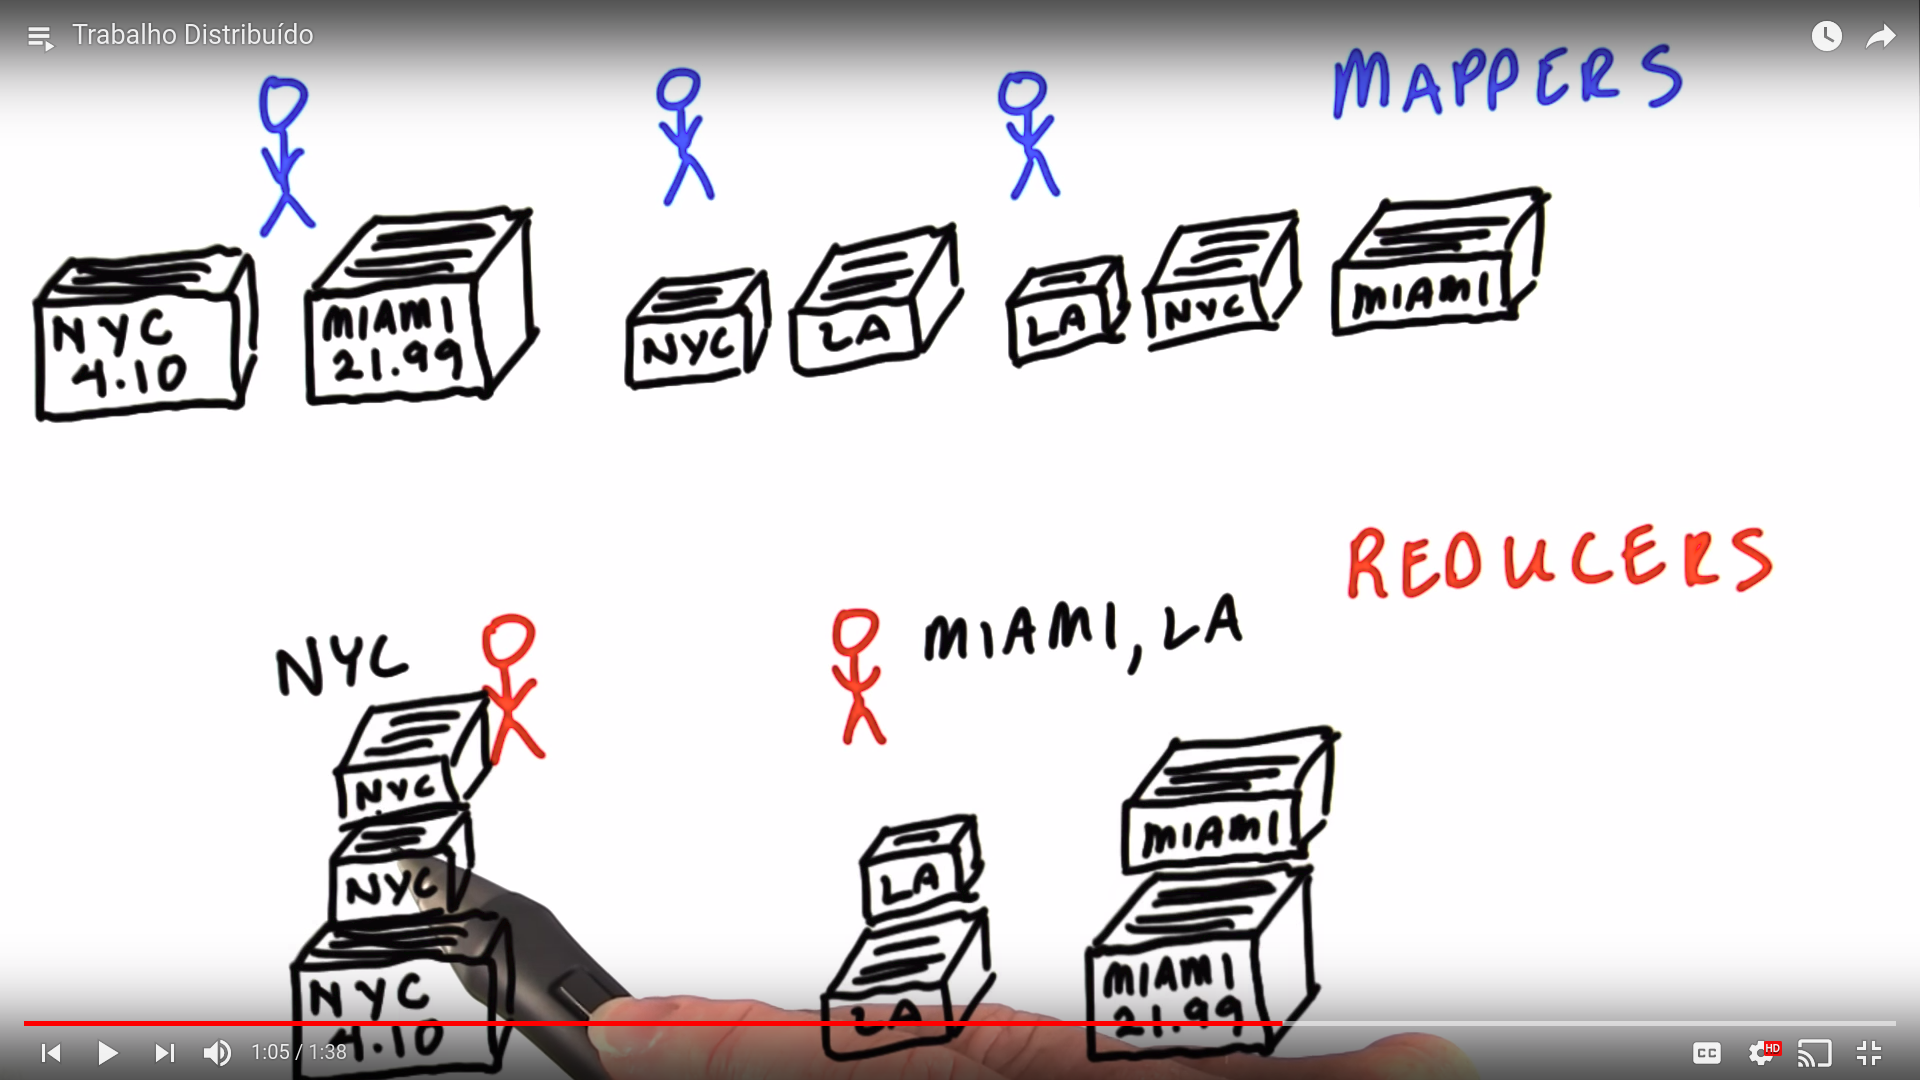 Trabalho Distribuído
MAPPERS
NYC
4.10
MIAMI
21.99
NYC
LA
LA
NYC
MIAMI
REDUCERS
NYC
MIAMI, LA
NYC
NYC
NYC
4.10
LA
LA
MIAMI
MIAMI
21.99
1:05 / 1:38
CC
HD